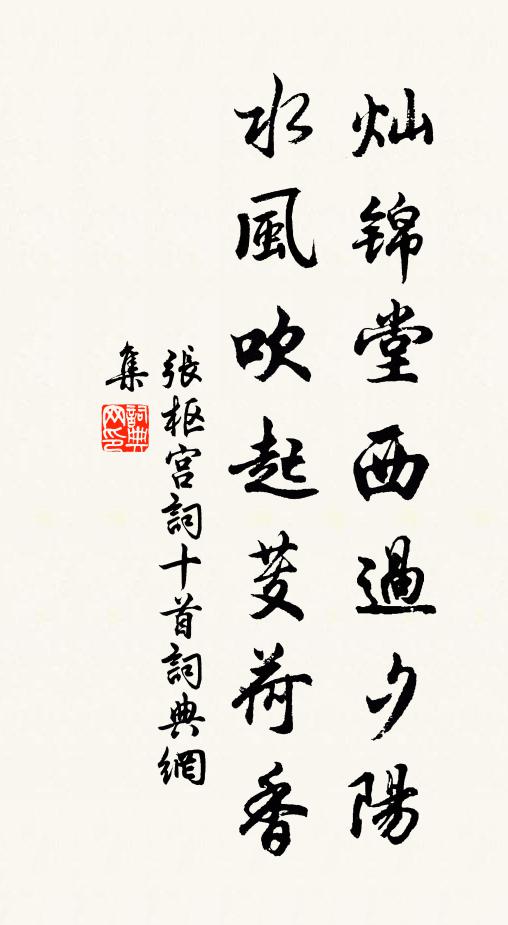 灿锦堂西過夕陽
水風吹起芰荷香
張枢宫詞十首詞典網
集
詞典网印